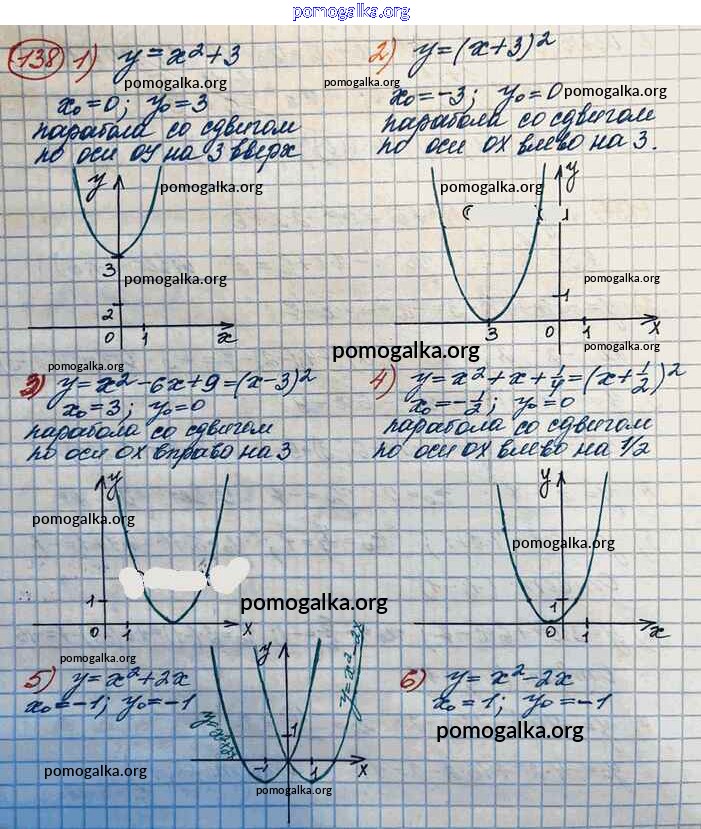 pomogalka.org
138 1) y = x² + 3
2) y = (x+3)²
pomogalka.org
pomogalka.org
pomogalka.org
x₀ = 0; y₀ = 3
x₀ = -3; y₀ = 0
парабола со сдвигом
по оси oy на 3 вверх
парабола со сдвигом
по оси ox влево на 3.
y
pomogalka.org
3
pomogalka.org
2
0 1 x
pomogalka.org
y
1
pomogalka.org
1
3 0 1 x
pomogalka.org
pomogalka.org
3) y = x² - 6x + 9 = (x-3)²
x₀ = 3; y₀ = 0
парабола со сдвигом
по оси ox вправо на 3
4) y = x² + x + 1/4 = (x + 1/2)²
x₀ = -1/2; y₀ = 0
парабола со сдвигом
по оси ox влево на 1/2
y
pomogalka.org
1
0 1 x
y
pomogalka.org
1
0 1 x
pomogalka.org
pomogalka.org
5) y = x² + 2x
x₀ = -1; y₀ = -1
pomogalka.org
y
y = x² - 2x
y = x² + 2x
1
-1 1 x
pomogalka.org
6) y = x² - 2x
x₀ = 1; y₀ = -1
pomogalka.org